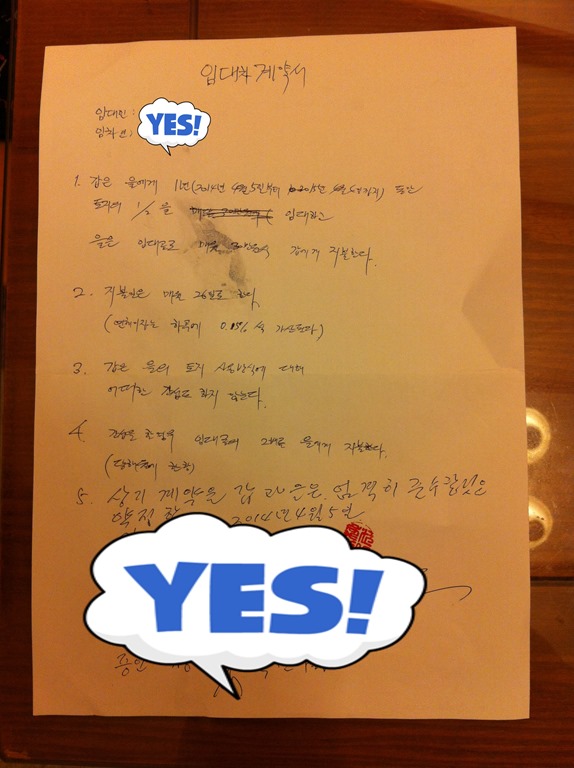 임대차 계약서
임대인:
임차인:
YES!
1. 갑은 을에게 1년(2014년 4월 5일부터 2015년 4월 5일까지) 동안
토지의 1/2 을 임대하고
을은 임대료로 매월 30만원씩 갑에게 지불한다.
2. 지불일은 매월 26일로 한다.
(연체이자는 하루에 0.15% 씩 가산된다)
3. 갑은 을의 토지 사용방식에 대해
어떠한 간섭도 하지 않는다.
4. 간섭을 할 임대료의 2배를 을에게 지불한다.
5. 상기 계약을 갑과 을은 엄격히 준수할것은
약정함 2014년 4월 5일
YES!